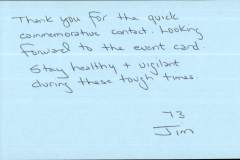 Thank you for the quick
commemorative contact. Looking
forward to the event card.
Stay healthy + vigilant
during these tough times.
73
Jim